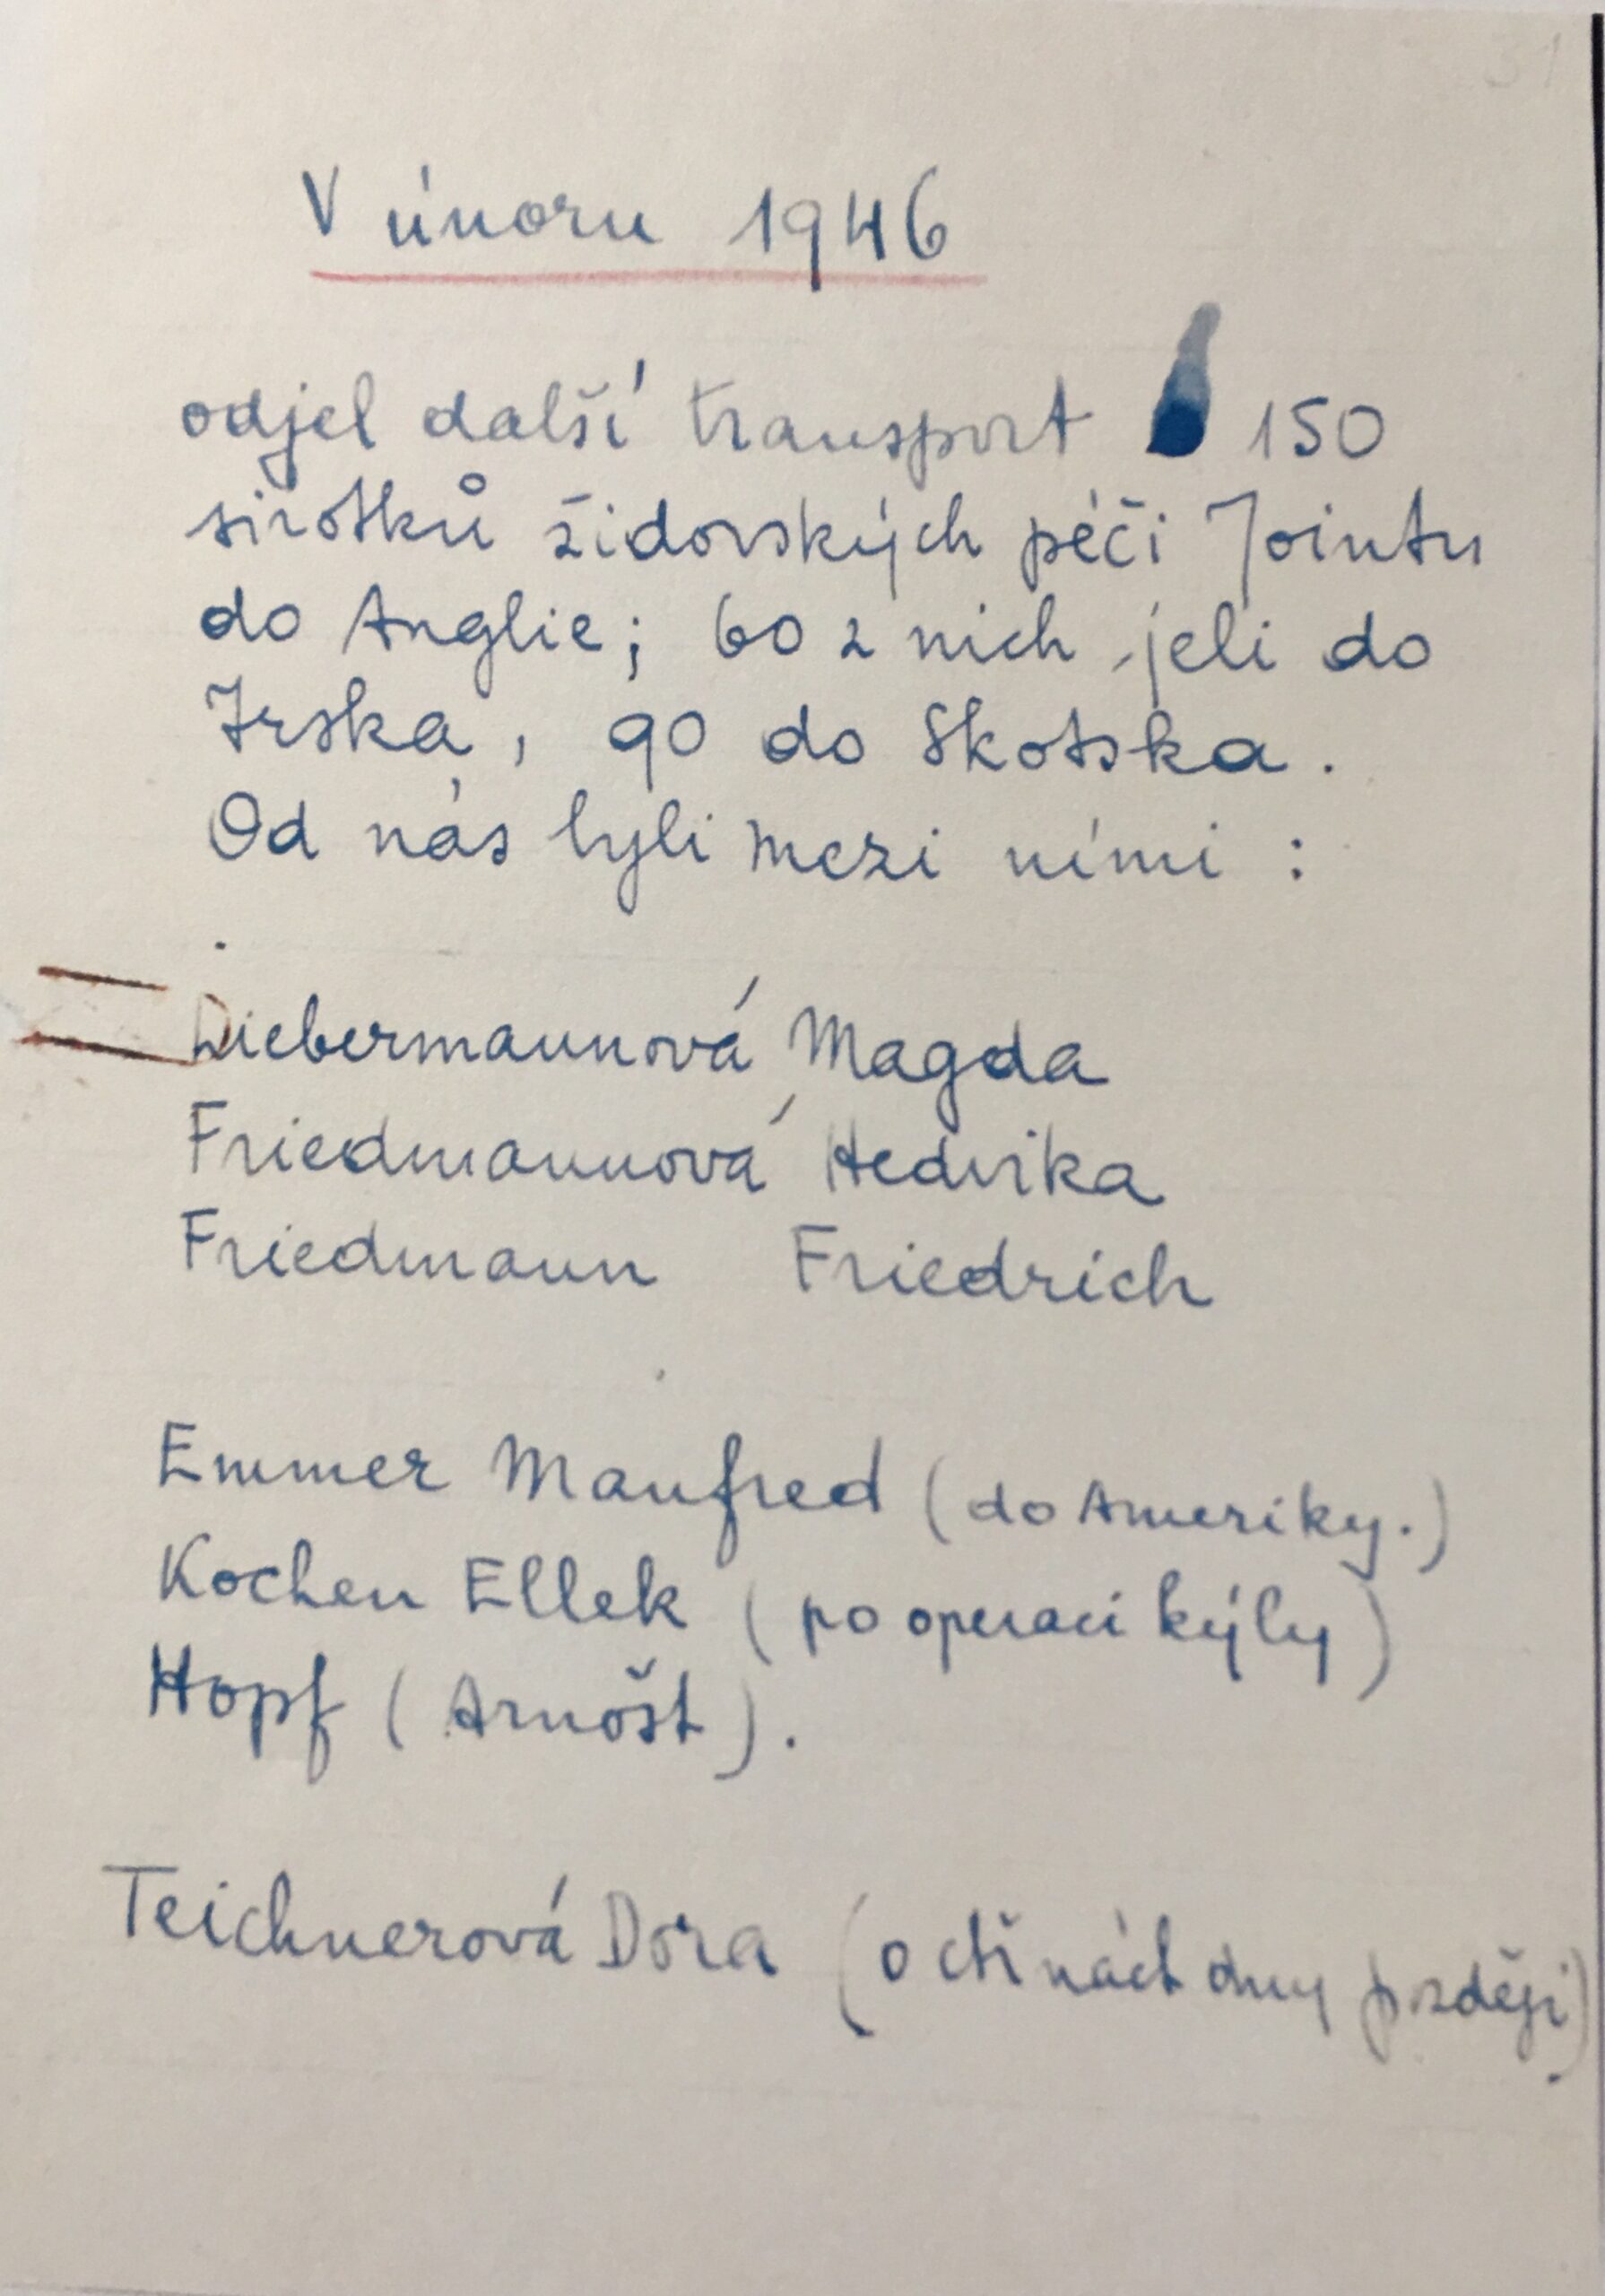 31
V únoru 1946
odjel další transport 150
sirotků židovských péčí Jointu
do Anglie; 60 z nich jeli do
Irska, 90 do Skotska.
Od nás byli mezi nimi :
Liebermannová Magda
Friedmannová Hedvika
Friedmann Friedrich
Emmer Manfred (do Ameriky.)
Kochen Ellek (po operaci kýly)
Hopf (Arnošt).
Teichnerová Dora (o čtrnáct dny později).